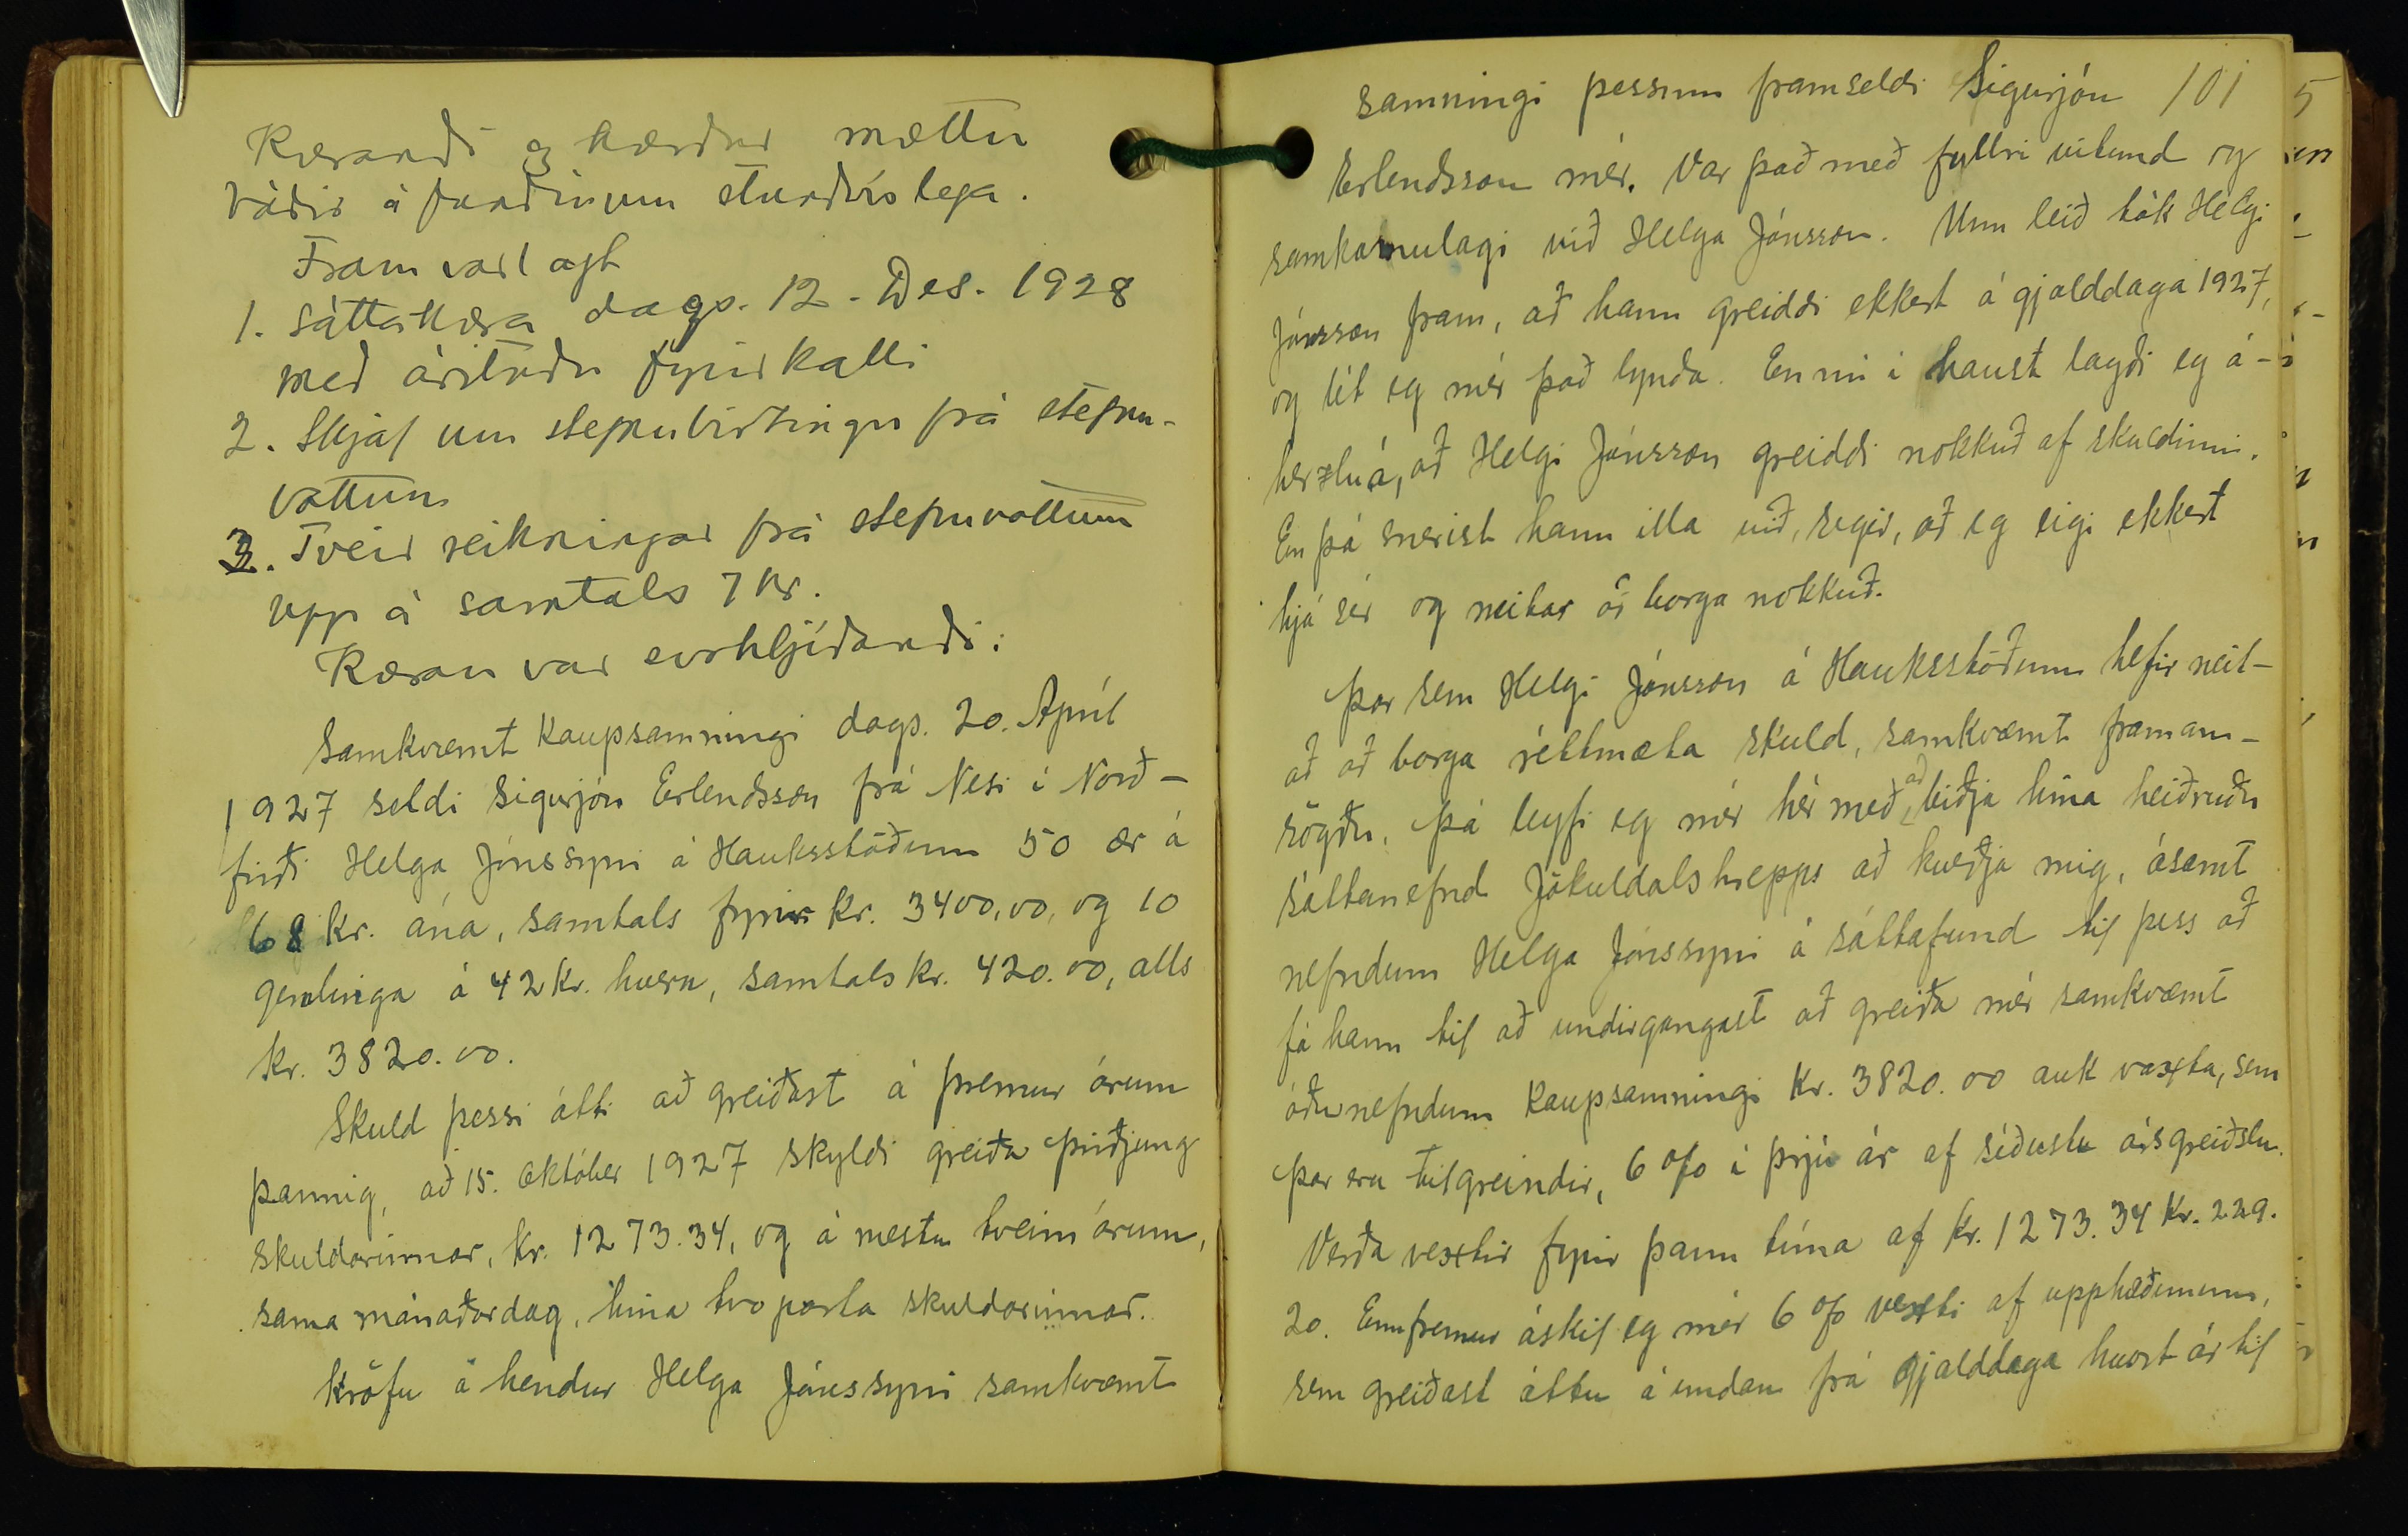 Kærandi og kærður mættu
báðir á fundinum stundvíslega.
Fram var lagt
1. Sáttakæra dags. 12. Des. 1928
með árituðu fyrirkalli
2. Skjal um stefnubirtingu frá stefnu-
vottum
3. Tveir reikningar frá stefnuvottum
upp á samtals 7 kr.
Kæran var svohljóðandi:
Samkvæmt kaupsamningi dags. 20. Apríl
1927 seldi Sigurjón Erlendsson frá Nesi í Norð-
firði Helga Jónssyni á Hauksstöðum 50 ær á
68 kr. ána, samtals fyrir kr. 3400,00, og 10
gemlinga á 42 kr. hvern, samtals kr. 420.00, alls
kr. 3820.00.
Skuld þessi átti að greiðast á þremur árum
þannig, að 15. október 1927 skyldi greiða þriðjung
skuldarinnar, kr. 1273.34, og á næstu tveim árum,
sama mánaðardag, hina tvo parta skuldarinnar.
Kröfu á hendur Helga Jónssyni samkvæmt
samningi þessum framseldi Sigurjón 101
Erlendsson mér. Var það með fullri vitund og
samkomulagi við Helga Jónsson. Um leið tók Helgi
Jónsson fram, að hann greiddi ekkert á gjalddaga 1927,
og lét eg mér það lynda. En nú í haust lagði eg á-
herzlu á, að Helgi Jónsson greiddi nokkuð af skuldinni.
En þá snerist hann illa við, segir, að eg eigi ekkert
hjá sér og neitar að borga nokkuð.
Þar sem Helgi Jónsson á Hauksstöðum hefir neit-
að að borga réttmæta skuld, samkvæmt framan-
sögðu, þá leyfi eg mér hér með að biðja hina heiðruðu
sáttanefnd Jökuldalshrepps að kveðja mig, ásamt
nefndum Helga Jónssyni á sáttafund til þess að
fá hann til að undirgangast að greiða mér samkvæmt
áðurnefndum kaupsamningi kr. 3820.00 auk vaxta, sem
þar eru tilgreindir, 6 % í þrjú ár af síðustu ársgreiðslu.
Verða vextir fyrir þann tíma af kr. 1273.34 kr. 229.
20. Ennfremur áskil eg mér 6 % vexti af upphæðunum,
sem greiðast áttu á undan frá gjalddaga hvort ár til